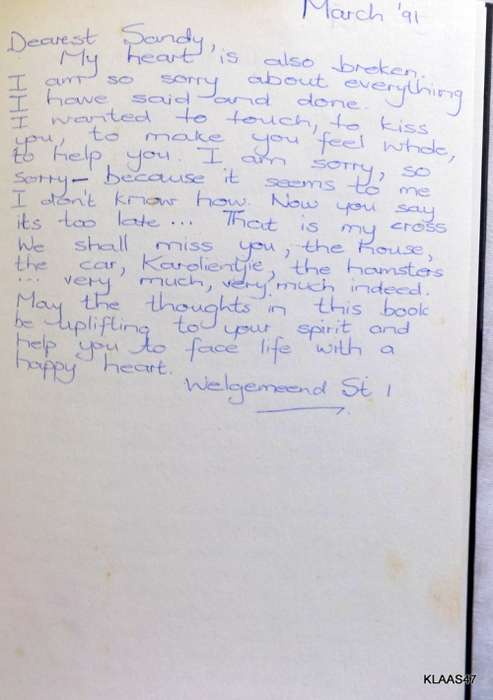 March '91
Dearest Sandy,
My heart is also broken.
I am so sorry about everything
I have said and done.
I wanted to touch, to kiss
you, to make you feel whole,
to help you. I am sorry, so
sorry – because it seems to me
I don't know how. Now you say
its too late ... That is my cross
We shall miss you, the house,
the car, Karolientjie, the hamsters
... very much, very much indeed.
May the thoughts in this book
be uplifting to your spirit and
help you to face life with a
happy heart.
Welgemeend St 1
KLAAS47